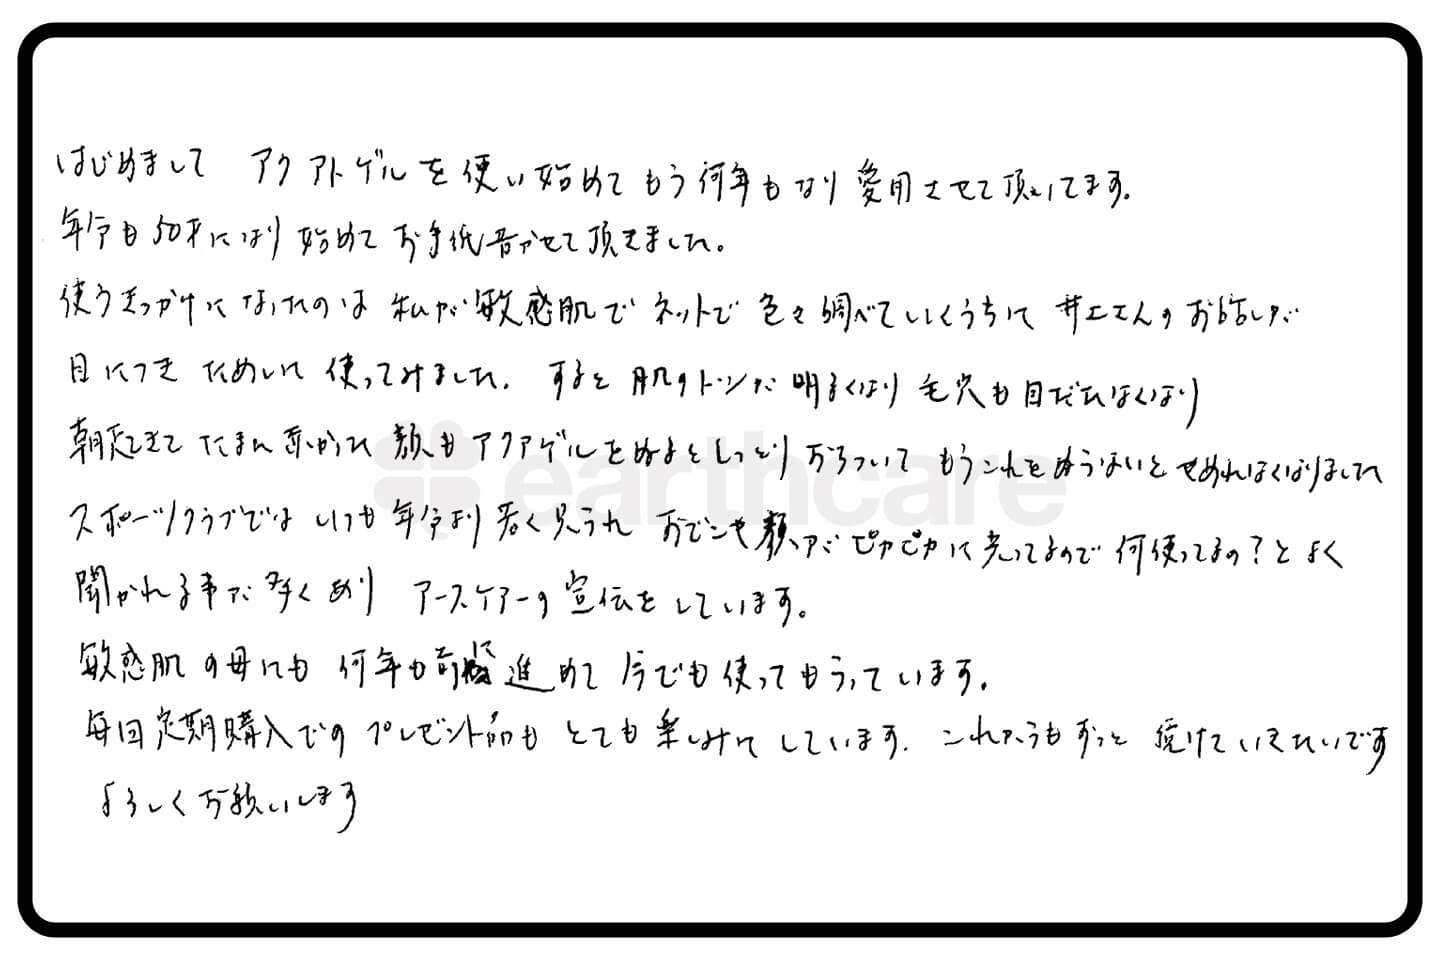 はじめまして アクアトゲルを使い始めてもう何年もなり愛用させて頂いてます。
年令も50才になり始めてお手紙書かせて頂きました。
使うきっかけになったのは私が敏感肌でネットで色々調べていくうちに井上さんのお話しが
目につきためしに使ってみました。すると肌のトーンが明るくなり毛穴も目だたなくなり
朝起きてたまに赤かった顔もアクアゲルをぬるとしっとりおちついてもうこれをぬらないとせめれなくなりました
スポーツクラブではいつも年令より若く見られ おでこや顔がピカピカに光ってるので何使ってるの?とよく
聞かれる事が多くあり アースケアーの宣伝をしています。
敏感肌の母にも何年も前に進めて今でも使ってもらっています。
毎回定期購入でのプレゼント品もとても楽しみにしています. これからもずっと続けていきたいです
よろしくお願いします
earthcare